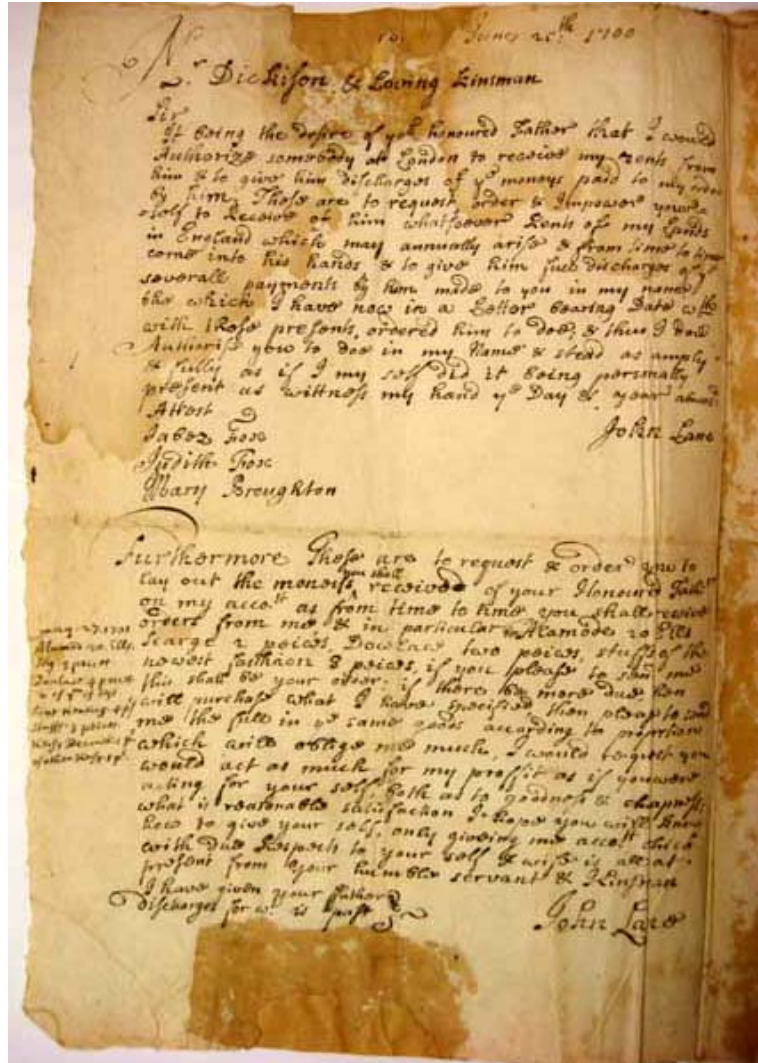 June 20th 1700
Mr. Dickison & Loving Kinsman
Sir
It being the desire of yor honoured Father that I would
Authorize somebody at London to receive my rents from
him & to give him discharges of ye moneys paid to my order
by him, These are to request, order & Impower your
self to Receive of him whatsoever Rents of my Lands
in England which may annually arise & from time to time
come into his hands & to give him such discharges of ye
severall payments by him made to you in my name
the which I have now in a Letter bearing Date wth
with these presents, ordered him to doe, & thus I doe
Authorise you to doe in my Name & stead as amply
& fully as if I my self did it being personally
present as wittness my hand ye Day & year above
Attest
John Lane
Jabez Fox
Judith Fox
Mary Broughton
Furthermore These are to request & order you to
lay out the moneiss you shall received of your Honoured Fathr
on my accott as from time to time you shall receive
orders from me & in particular Alamode 20 Ells
Scarge 2 peices, Dowlace two peices, stuffs of the
newest fashaon 8 peices, if you please to send me
this shall be your order. if there be more due then
will purchase what I have specified, then pleas to send
me the full in ye same goods according to proportion
which will oblige me much, I would request you
would act as much for my proffit as if you were
acting for your self, both as to goodness & cheapness
what is reasonable satisfaction I hope you will know
how to give your self, only giveing me accott which
with due Respects to your self & wife is all at
present from your humble servant & Kinsman
I have given your father
discharges for wt is past
John Lane
May 27. 1701
Alamod 20 Ells